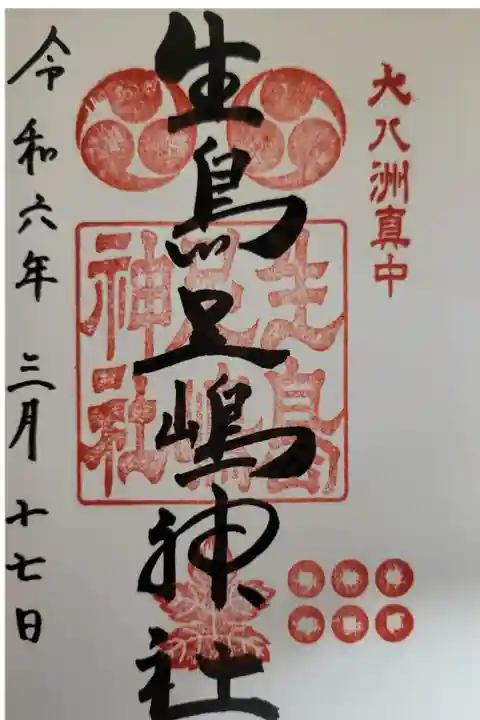 大八洲真中
生島足嶋神社
生島
足嶋
神社
令和六年 三月 十七日